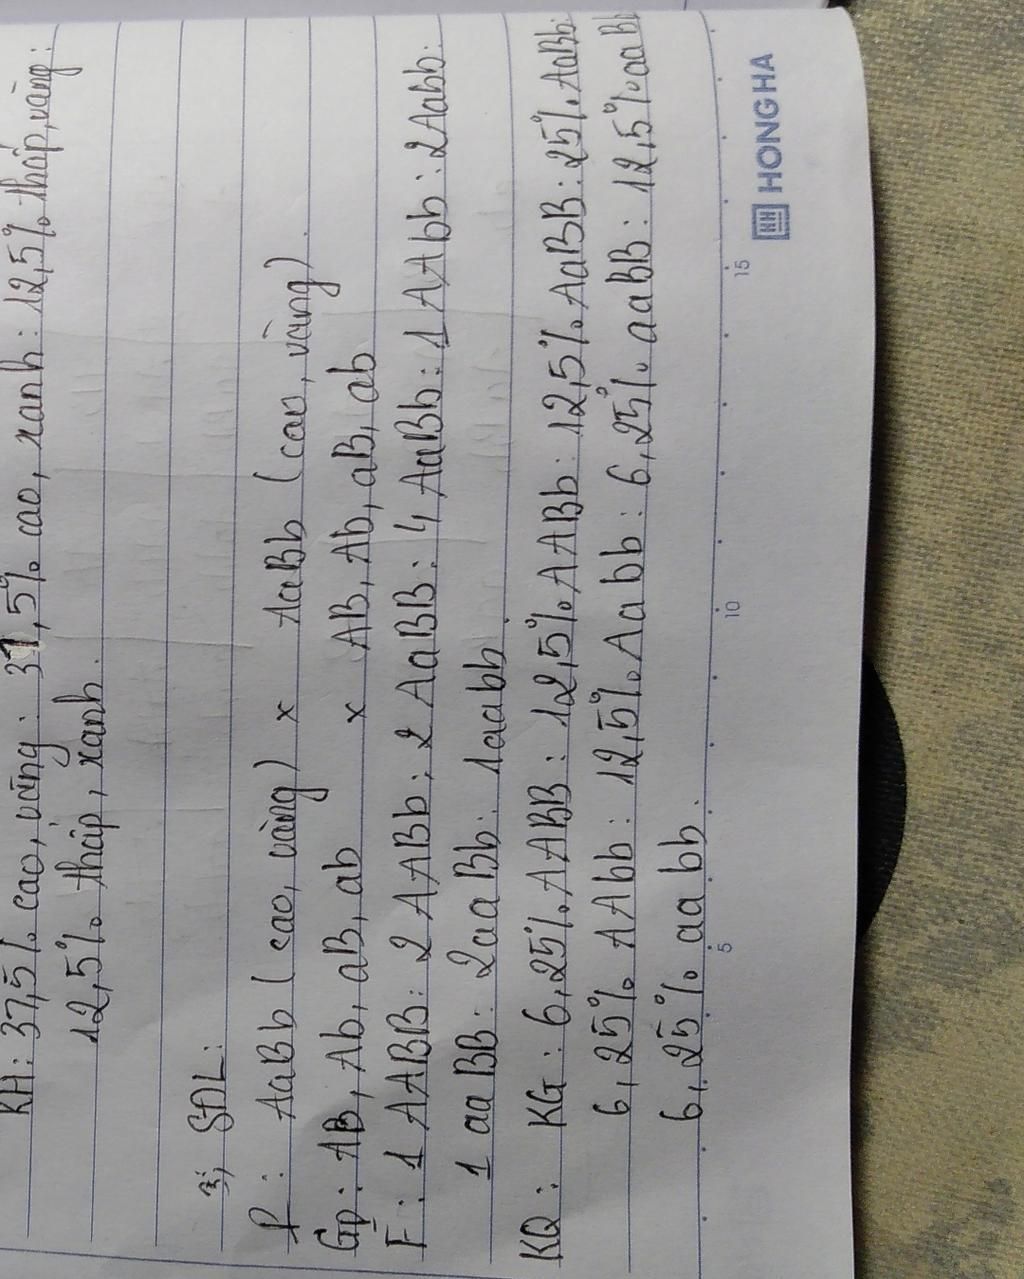 KH: 37,5% cao, vàng: 37,5% cao, xanh: 12,5% thấp, vàng:
12,5% thấp, xanh.
3; SĐL:
P: AaBb (cao, vàng) x AaBb (cao, vàng).
Gp: AB, Ab, aB, ab x AB, Ab, aB, ab
F: 1 AABB: 2 AABb: 2 AaBB: 4 AaBb: 1 AAbb: 2Aabb:
1 aaBB: 2aaBb: 1aabb.
KQ: KG: 6,25% AABB: 12,5% AABb: 12,5% AaBB: 25% AaBb:
6,25% AAbb: 12,5% Aabb: 6,25% aaBB: 12,5% aaBb
6,25% aabb.
5 10 15
HH HONG HA